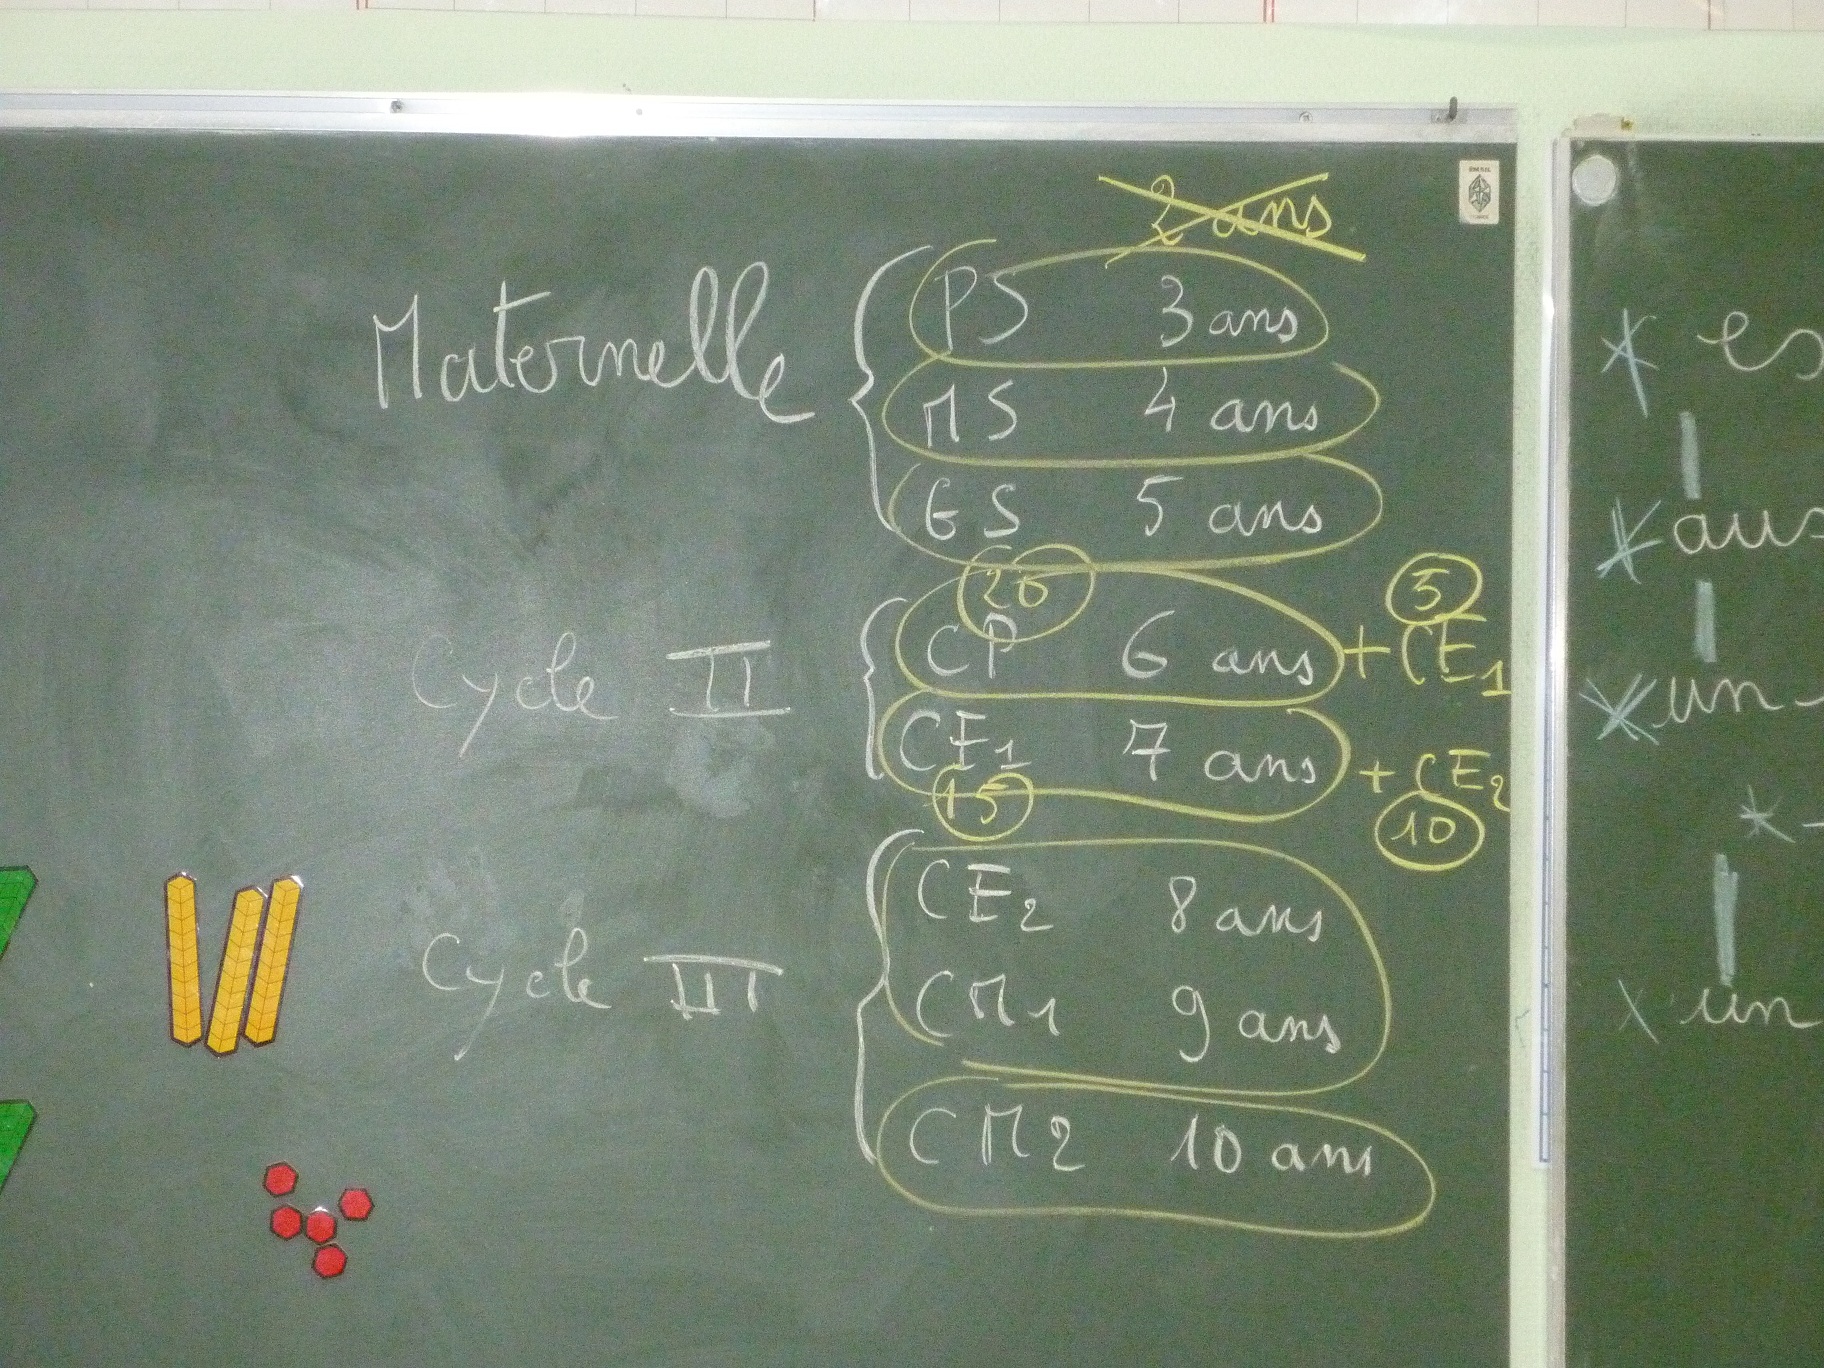 2 ans
Maternelle
PS 3 ans
MS 4 ans
GS 5 ans
20
5
Cycle II
CP 6 ans + CE1
CE1 7 ans + CE2
15
10
Cycle III
CE2 8 ans
CM1 9 ans
CM2 10 ans
* es
* aus
* un
*
x un